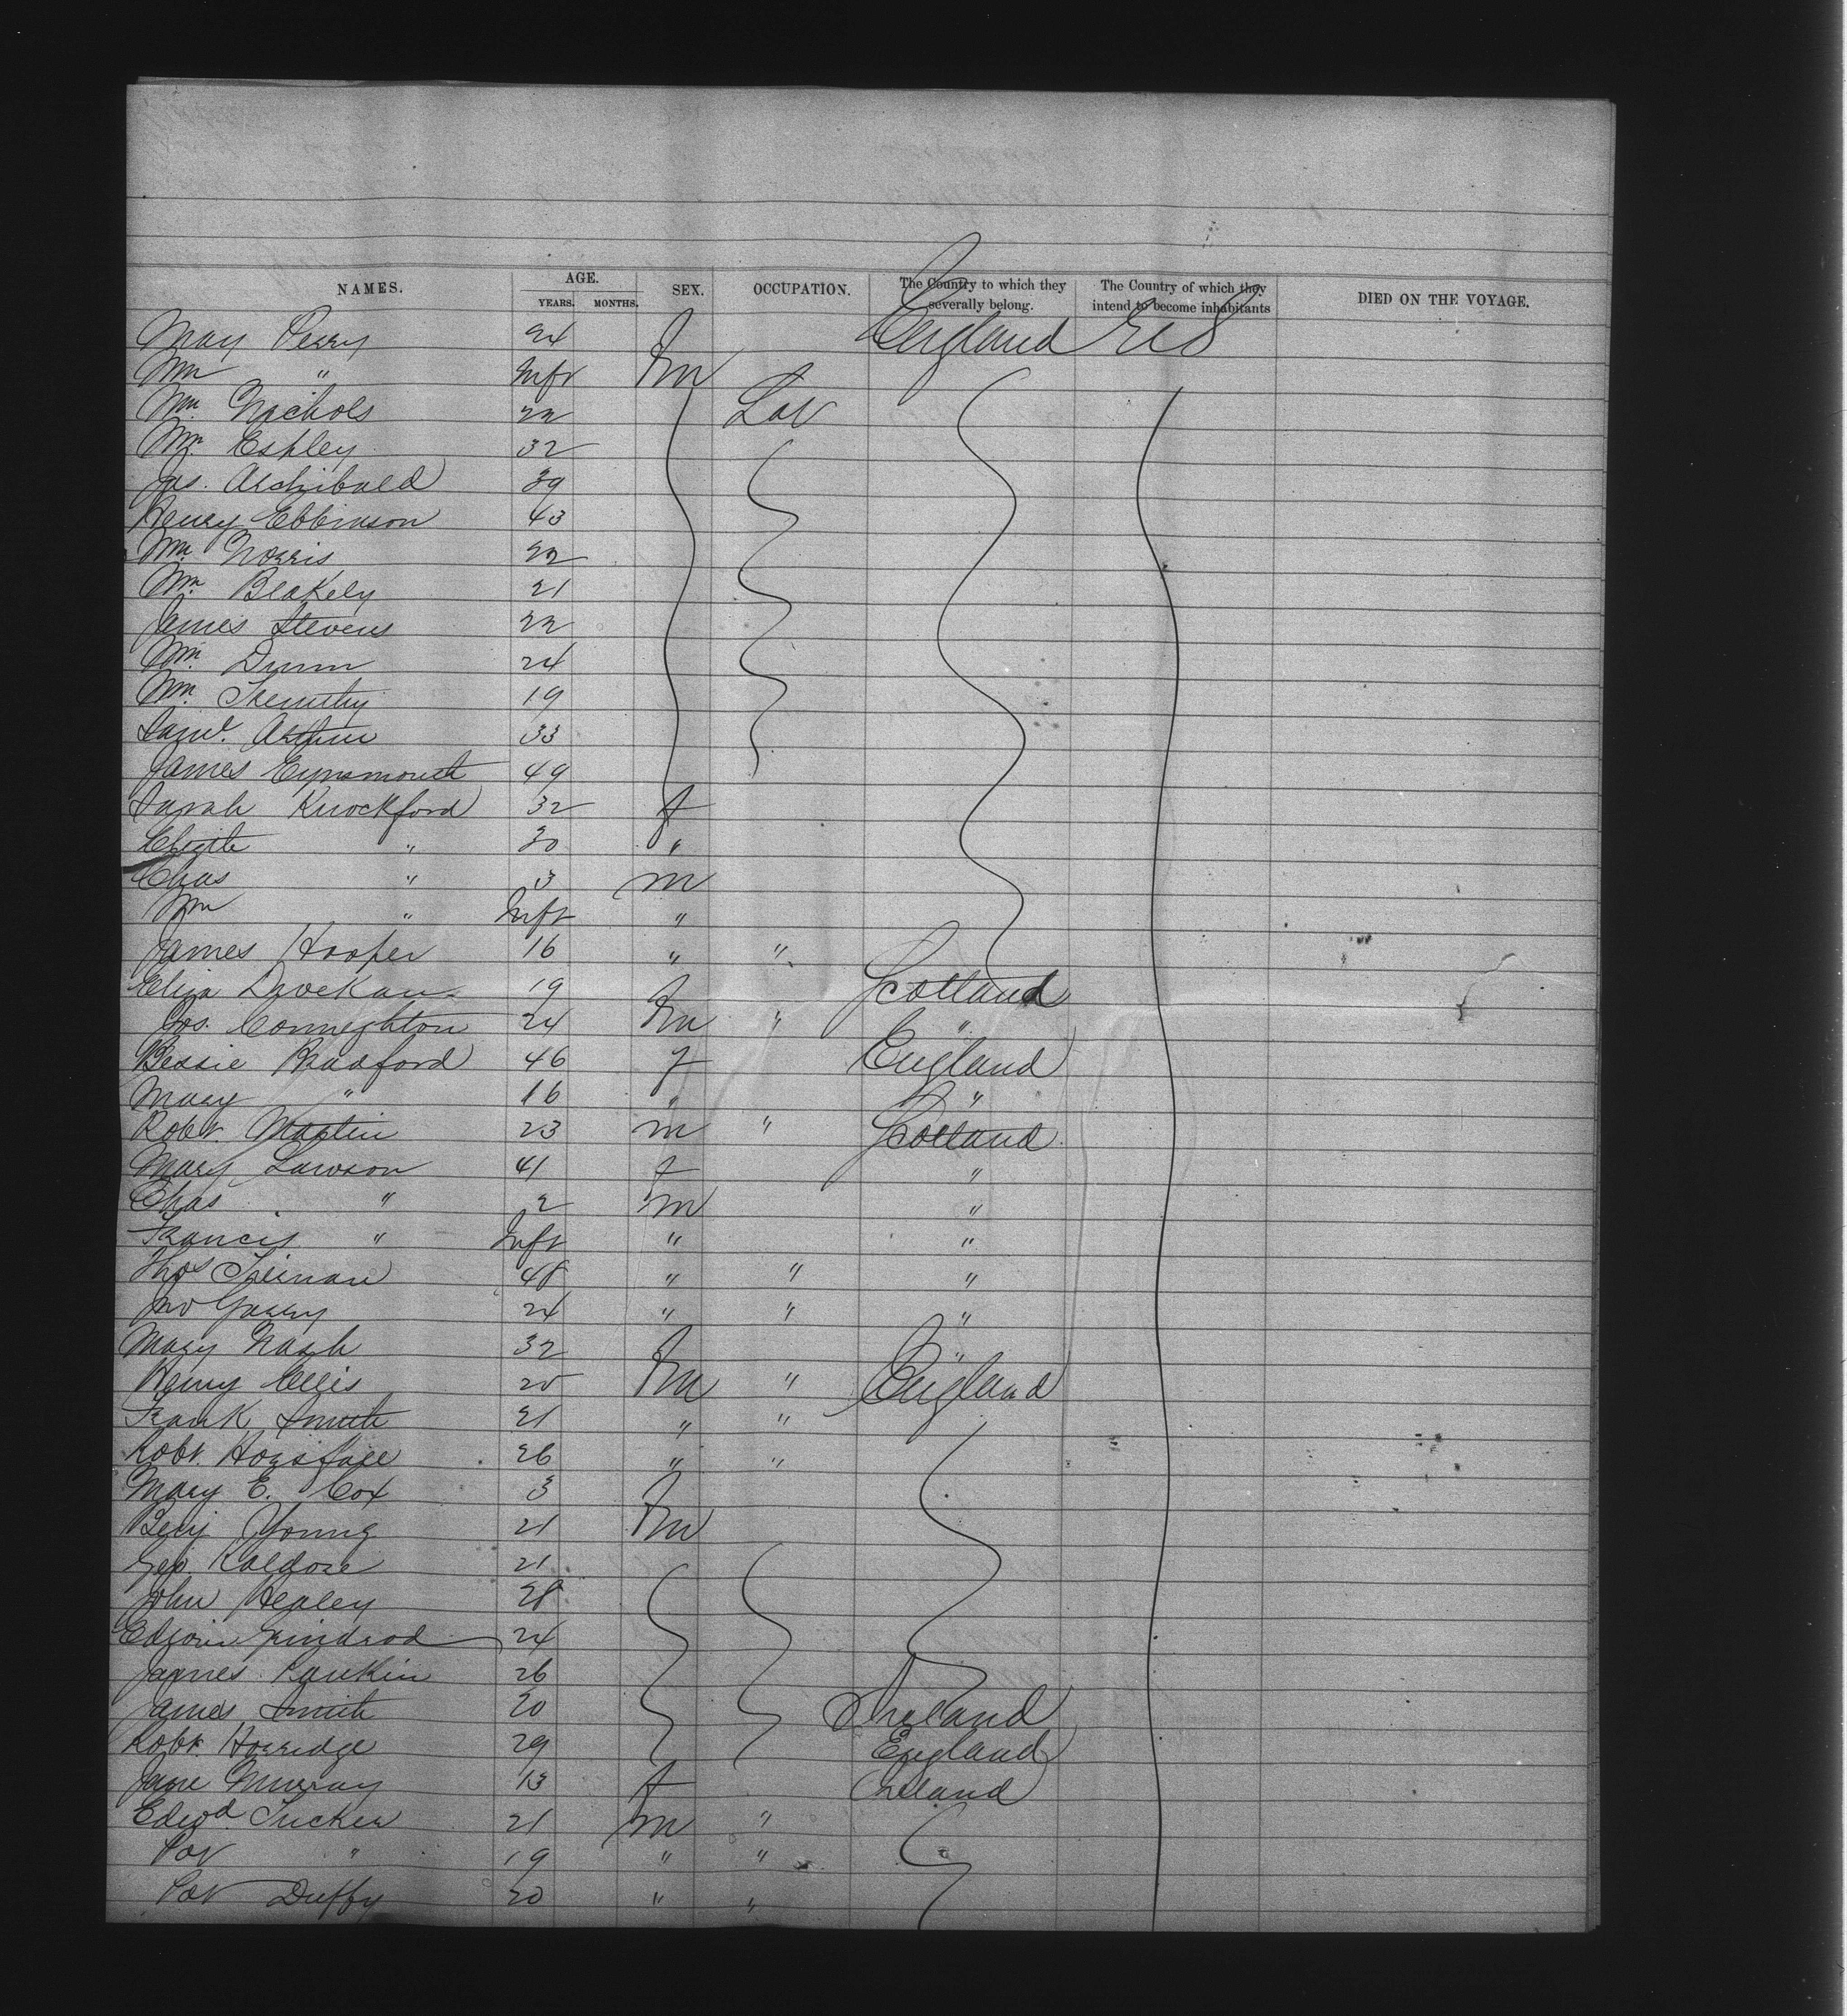 NAMES. AGE. YEARS. MONTHS. SEX. OCCUPATION. The Country to which they severally belong. The Country of which they intend to become inhabitants DIED ON THE VOYAGE.
May Perry 24 f England U S
Wm " Inft m
Wm Nichols 22 Lab
Wm Eshley 32
Jas. Archibald 39
Henry Ebbinson 43
Wm Norris 22
Wm Blakely 21
James Stevens 22
Wm Dunn 24
Wm 19
Saml. Arthur 33
James Eynsmouth 49
Sarah Knockford 32 f
" 30 "
Chas " 3 m
Wm " Inft "
James Hooper 16 " "
Eliza 19 f Scotland
Jos. Conneghton 24 m " "
Bessie Bradford 46 f England
Mary " 16 " "
Robt. Martin 23 m " Scotland
Mary Lawson 41 f "
Chas " 2 m "
Francis " Inft " "
Thos 48 " " "
Jno Garry 24 " " "
Mary Nash 32 f "
Henry Ellis 20 m " England
Frank Smith 21 " "
Robt. Horsfall 26 " "
Mary E. Cox 3 f
Benj Young 21 m
Geo. Kaldore 21
John Healey 28
Edwin Grindrod 24
James Rankin 26
James Smith 20 Ireland
Robt. Horridge 29 England
Jane Murray 13 f Ireland
Edwd Tucker 21 m "
Pat " 19 " "
Pat Duffy 20 " "